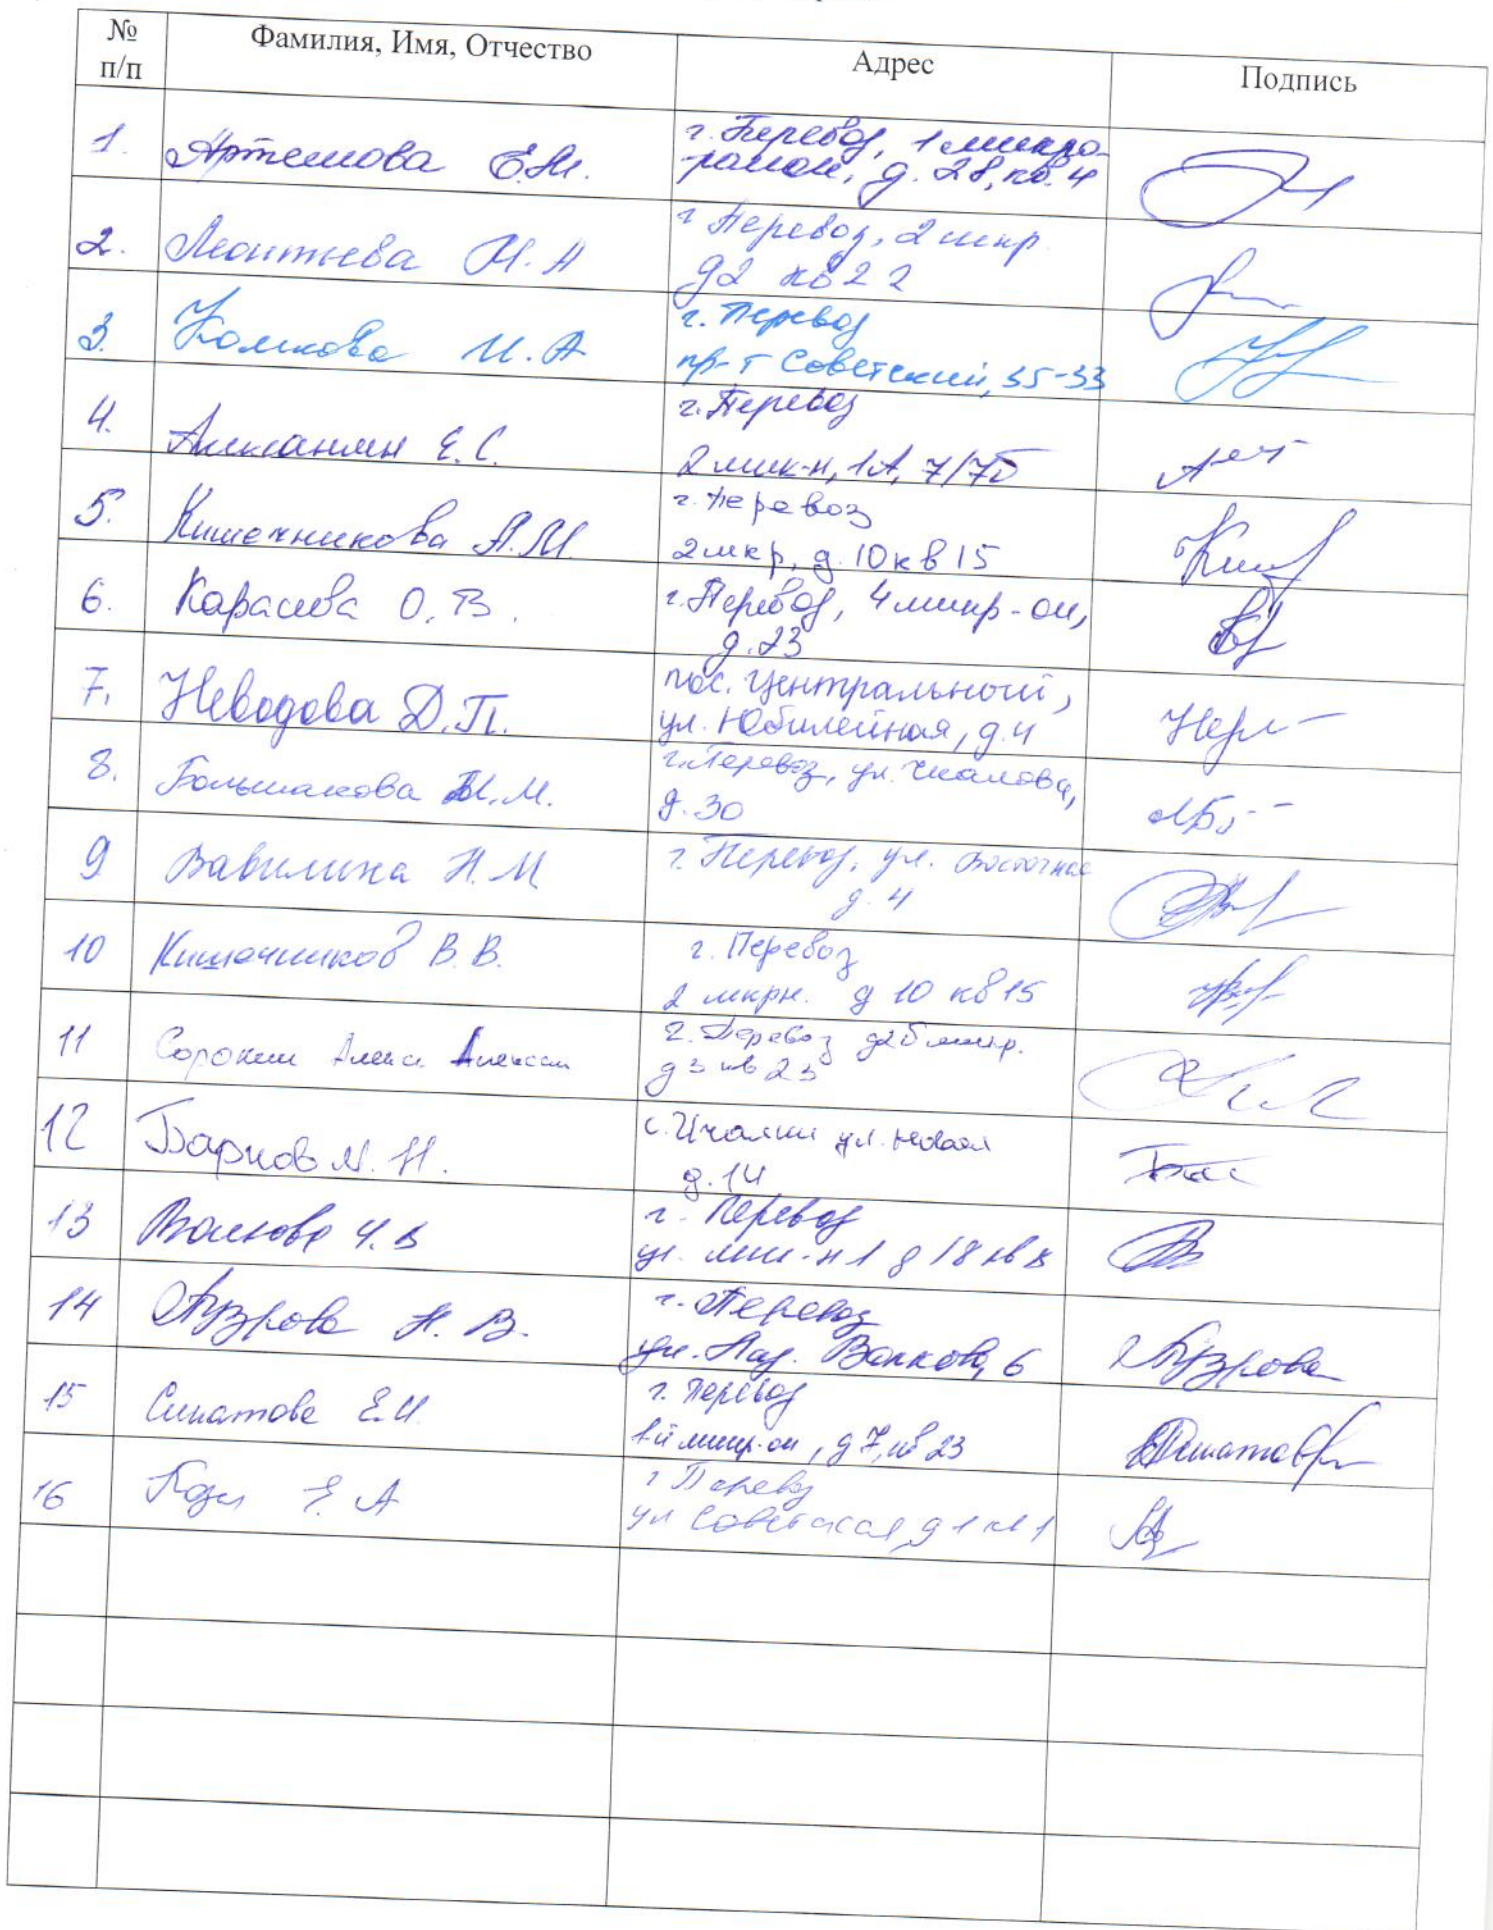 № п/п
Фамилия, Имя, Отчество
Адрес
Подпись
1. Артемова Е.М.
г. Перевоз, 1 микро-
район, д. 28, кв. 4
2. Леонтьева М. А
г Перевоз, 2 мкр
д2 кв 22
3. И. А
г. Перевоз
пр-т Советский, 35-33
4. Е. С.
г. Перевоз
2 мик-н, 1А, 7/7Б
5. Кишечникова А.М.
г. Перевоз
2 мкр, д. 10 кв 15
6. Карасева О. В.
г. Перевоз, 4 микр-он,
д. 23
7. Неводова Д. П.
пос. Центральный,
ул. Юбилейная, д. 4
8. Большакова М.
г. Перевоз, ул. Чкалова,
д. 30
9 Вавилина Н. М
г. Перевоз, ул. Восточная
д. 4
10 Кишечников В. В.
г. Перевоз
2 мкрн. д 10 кв 15
11 Сорокин
г. Перевоз
д 3 кв 23
12 Барков Н.
с. Ичалки ул. Новая
д. 14
13 Волкова
г. Перевоз
д 18 кв
14 Н. В.
г. Перевоз
ул. 6
15 Е.И
г. Перевоз
1-й микр-он, д 7, кв 23
16 Е. А
г Перевоз
ул Советская, д 1 кв 1